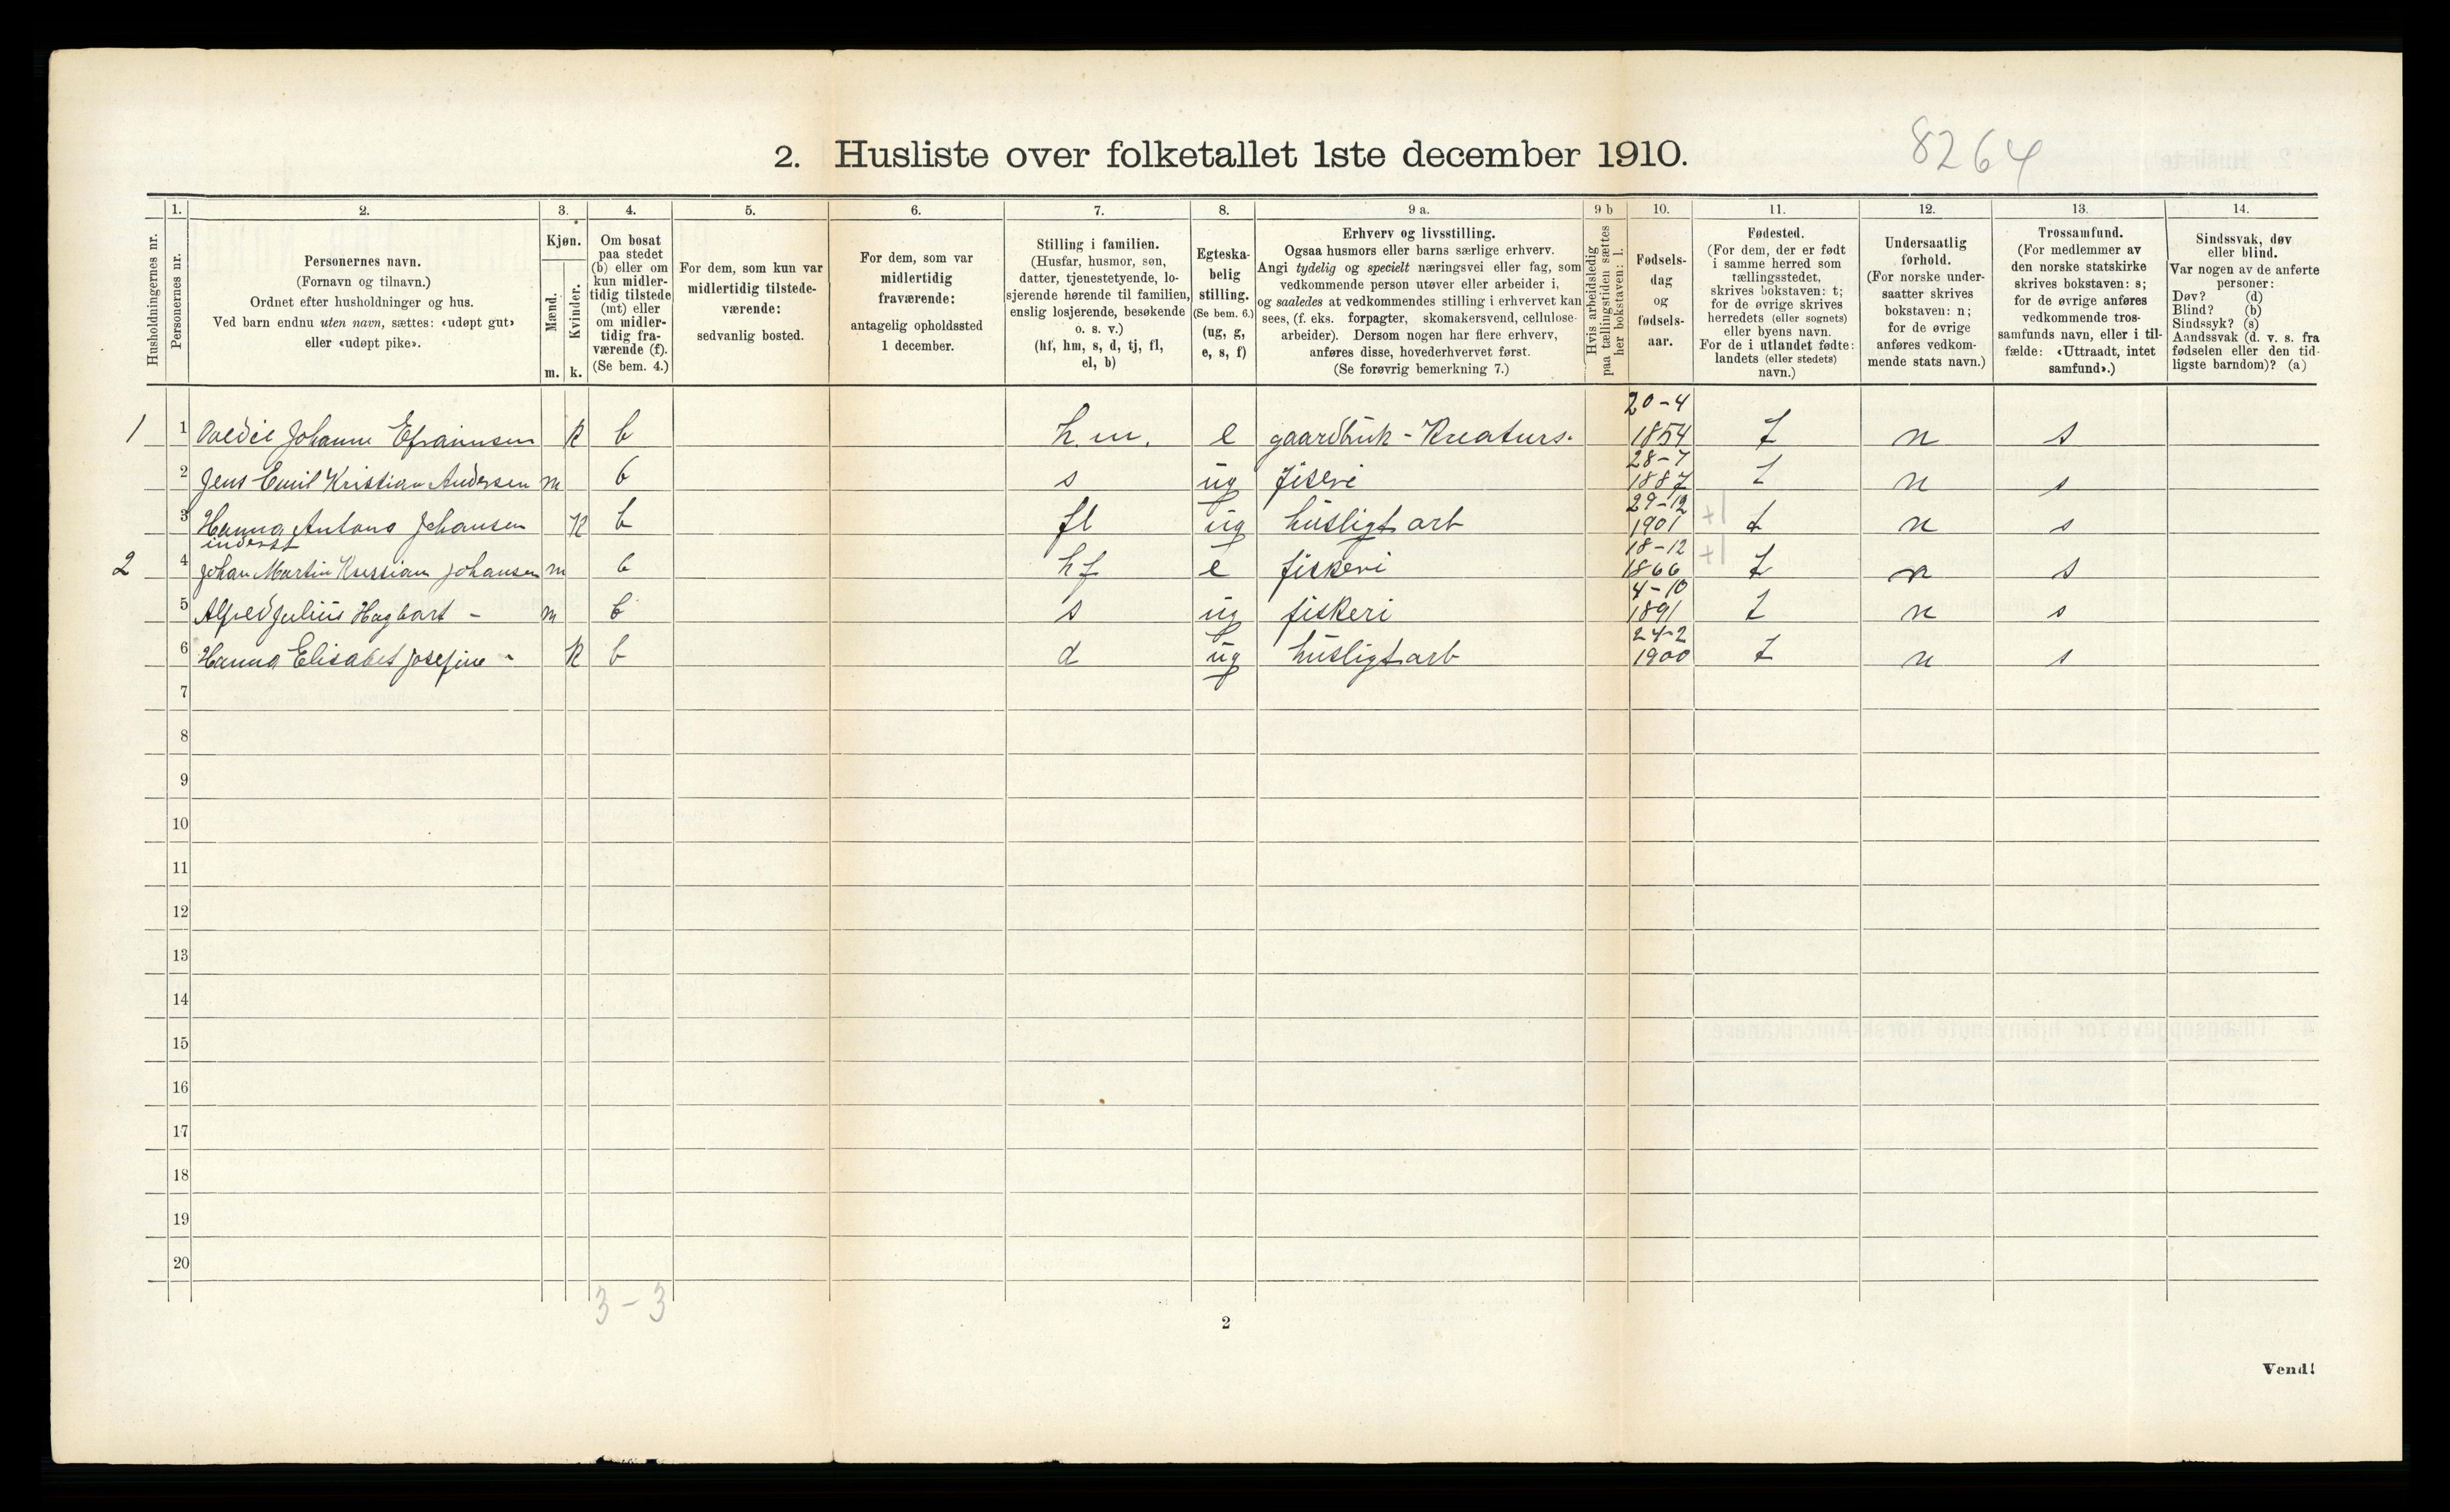 8264
2. Husliste over folketallet 1ste december 1910.
Husholdningernes nr.
1.
Personernes nr.
2.
Personernes navn.
(Fornavn og tilnavn.)
Ordnet efter husholdninger og hus.
Ved barn endnu uten navn, sættes: «udøpt gut»
eller «udøpt pike».
3.
Kjøn.
Mænd.
Kvinder.
m. k.
4.
Om bosat
paa stedet
(b) eller om
kun midler-
tidig tilstede
(mt) eller
om midler-
tidig fra-
værende (f).
(Se bem. 4.)
5.
For dem, som kun var
midlertidig tilstede-
værende:
sedvanlig bosted.
6.
For dem, som var
midlertidig
fraværende:
antagelig opholdssted
1 december.
7.
Stilling i familien.
(Husfar, husmor, søn,
datter, tjenestetyende, lo-
sjerende hørende til familien,
enslig losjerende, besøkende
o. s. v.)
(hf, hm, s, d, tj, fl,
el, b)
8.
Egteska-
belig
stilling.
(Se bem. 6.)
(ug, g,
e, s, f)
9 a.
Erhverv og livsstilling.
Ogsaa husmors eller barns særlige erhverv.
Angi tydelig og specielt næringsvei eller fag, som
vedkommende person utøver eller arbeider i,
og saaledes at vedkommendes stilling i erhvervet kan
sees, (f. eks. forpagter, skomakersvend, cellulose-
arbeider). Dersom nogen har flere erhverv,
anføres disse, hovederhvervet først.
(Se forøvrig bemerkning 7.)
9 b
Hvis arbeidsledig
paa tællingstiden sættes
her bokstaven: l.
10.
Fødsels-
dag
og
fødsels-
aar.
11.
Fødested.
(For dem, der er født
i samme herred som
tællingsstedet,
skrives bokstaven: t;
for de øvrige skrives
herredets (eller sognets)
eller byens navn.
For de i utlandet fødte:
landets (eller stedets)
navn.)
12.
Undersaatlig
forhold.
(For norske under-
saatter skrives
bokstaven: n;
for de øvrige
anføres vedkom-
mende stats navn.)
13.
Trossamfund.
(For medlemmer av
den norske statskirke
skrives bokstaven: s;
for de øvrige anføres
vedkommende tros-
samfunds navn, eller i til-
fælde: «Uttraadt, intet
samfund».)
14.
Sindssvak, døv
eller blind.
Var nogen av de anførte
personer:
Døv? (d)
Blind? (b)
Sindssyk? (s)
Aandssvak (d. v. s. fra
fødselen eller den tid-
ligste barndom)? (a)
1 1 Johanne Efraimsen k b h.m. e gaardbruk - Kreaturs. 20-4 1854 t n s
2 Jens Emil Kristian Andersen m b s ug fiskeri 28-7 1887 t n s
3 Hanna Antona Johansen k b fl ug husligt arb 29-12 1901 +1 t n s
inderst
2 4 Johan Martin Kristian Johansen m b hf e fiskeri 18-12 1866 +1 t n s
5 Alfred Julius Hagbart - m b s ug fiskeri 4-10 1891 t n s
6 Hanna Elisabet Josefine - k b d ug husligt arb 24-2 1900 t n s
7
8
9
10
11
12
13
14
15
16
17
18
19
20
3-3
2
Vend!